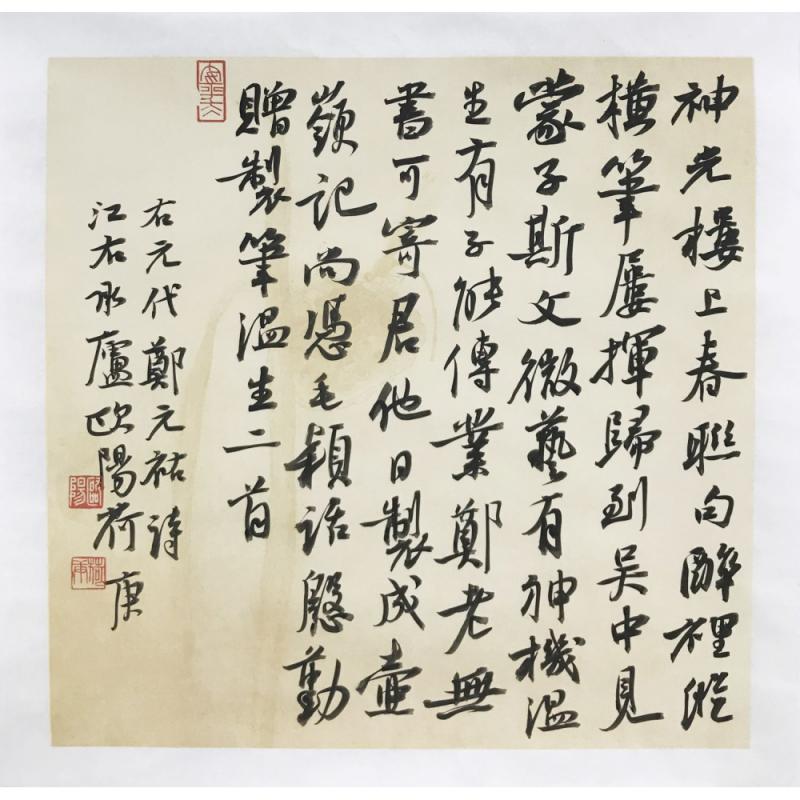 神光樓上春聯句醉裡縱
橫筆屢揮歸到吳中見
蒙子斯文微藝有神機溫
生有子能傳業鄭老無
書可寄君他日製成壺
嶺記尚憑毛穎話慇勤
贈製筆溫生二首
右元代鄭元祐詩
江右廬欧陽荷庚